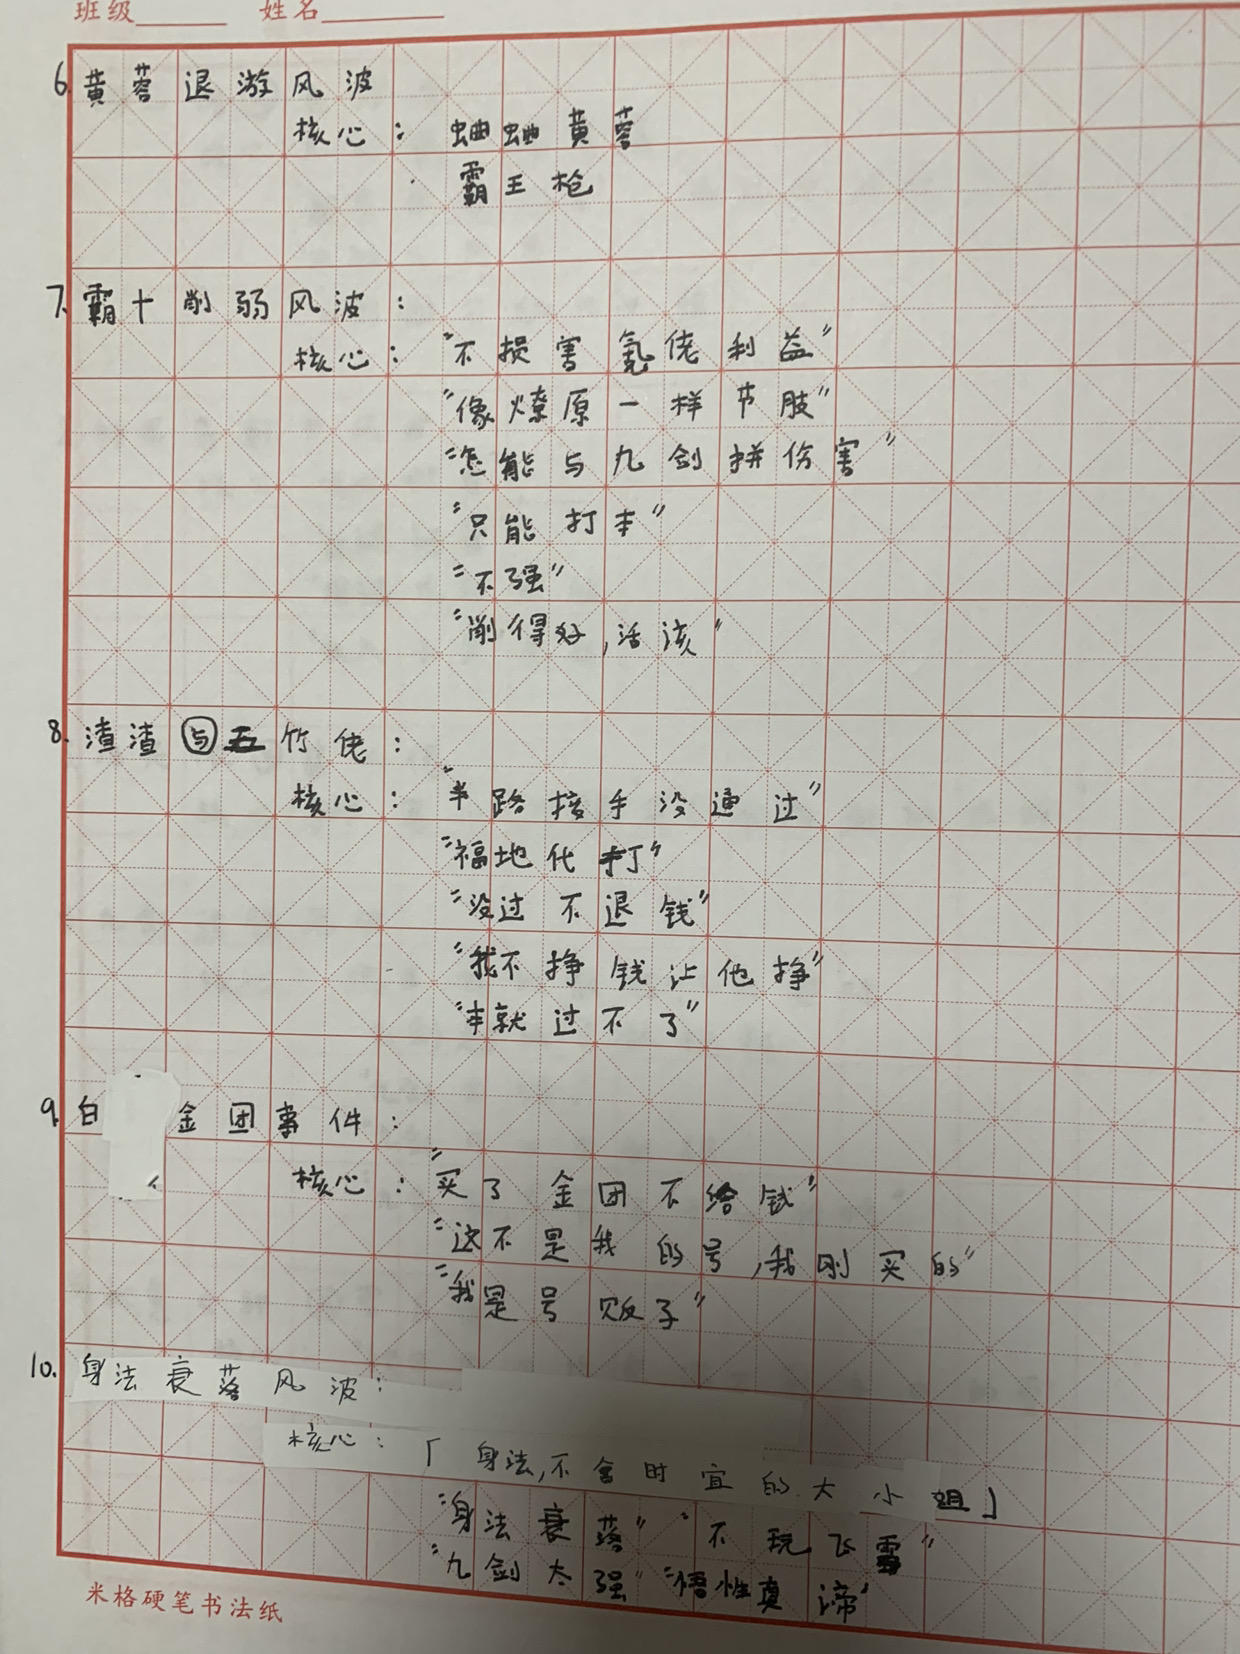 班级 姓名
6. 黄蓉退游风波
核心：蛐蛐黄蓉
霸王枪
7. 霸十削弱风波：
核心：“不损害氪佬利益”
“像燎原一样节肢”
“怎能与九剑拼伤害”
“只能打本”
“不强”
“削得好,活该”
8. 渣渣与五竹佬：
核心：“半路接手没通过”
“福地代打”
“没过不退钱”
“我不挣钱让他挣”
“本就过不了”
9. 白 金团事件：
核心：“买了金团不给钱”
“这不是我的号,我刚买的”
“我是号贩子”
10. 身法衰落风波：
核心：「身法,不合时宜的大小姐」
“身法衰落” “不玩飞雪”
“九剑太强” “悟性真谛”
米格硬笔书法纸